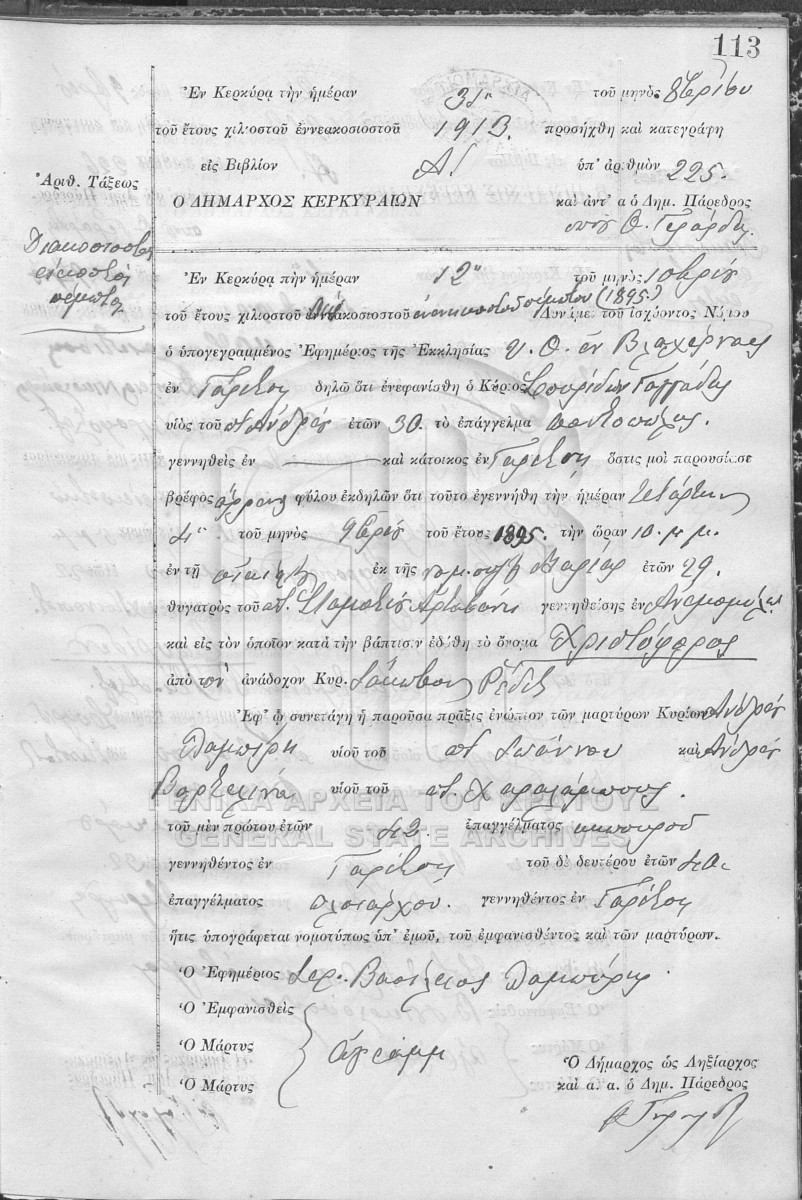 113
Ἐν Κερκύρᾳ τὴν ἡμέραν 31ην τοῦ μηνὸς 8βρίου
τοῦ ἔτους χιλιοστοῦ ἐννεακοσιοστοῦ 1913. προσήχθη καὶ κατεγράφη
εἰς Βιβλίον Α! ὑπ' ἀριθμὸν 225.
Ἀριθ. Τάξεως
Ο ΔΗΜΑΡΧΟΣ ΚΕΡΚΥΡΑΙΩΝ καὶ ἀντ' α ὁ Δημ. Πάρεδρος
Διακοσιοστὸν
εἰκοστὸν
πέμπτον
Ἐν Κερκύρᾳ τὴν ἡμέραν 12η τοῦ μηνὸς 10βρίου
τοῦ ἔτους χιλιοστοῦ ἐννεακοσιοστοῦ (1895) Δυνάμει τοῦ ἰσχύοντος Νόμου
ὁ ὑπογεγραμμένος Ἐφημέριος τῆς Ἐκκλησίας Υ. Θ. ἐν Βλαχέρναις
ἐν Γαρίτσῃ δηλῶ ὅτι ἐνεφανίσθη ὁ Κύριος Σπυρίδων
υἱὸς τοῦ Ἀνδρέου ἐτῶν 30. τὸ ἐπάγγελμα παντοπώλης.
γεννηθεὶς ἐν — καὶ κάτοικος ἐν Γαρίτσῃ ὅστις μοὶ παρουσίασε
βρέφος ἄρρεν φύλου ἐκδηλῶν ὅτι τοῦτο ἐγεννήθη τὴν ἡμέραν Τετάρτην
τοῦ μηνὸς 9βρίου τοῦ ἔτους 1895. τὴν ὥραν 10. μ. μ.
ἐν τῇ οἰκίᾳ ἐκ τῆς Μαρίας ἐτῶν 29.
θυγατρὸς τοῦ Σταματίου γεννηθείσης ἐν
καὶ εἰς τὸν ὁποῖον κατὰ τὴν βάπτισιν ἐδόθη τὸ ὄνομα Χριστόφορος
ἀπὸ τὸν ἀνάδοχον Κυρ. Ἰάκωβον
Ἐφ' ᾧ συνετάγη ἡ παροῦσα πρᾶξις ἐνώπιον τῶν μαρτύρων Κυρίων Ἀνδρέου
υἱοῦ τοῦ Ἰωάννου καὶ Ἀνδρέου
υἱοῦ τοῦ Χαραλάμπους.
ΓΕΝΙΚΑ ΑΡΧΕΙΑ ΤΟΥ ΚΡΑΤΟΥΣ
τοῦ μὲν πρώτου ἐτῶν 42. ἐπαγγέλματος κηπουροῦ
GENERAL STATE ARCHIVES
γεννηθέντος ἐν Γαρίτσῃ τοῦ δὲ δευτέρου ἐτῶν 40.
ἐπαγγέλματος πλοιάρχου. γεννηθέντος ἐν Γαρίτσῃ
ἥτις ὑπογράφεται νομοτύπως ὑπ' ἐμοῦ, τοῦ ἐμφανισθέντος καὶ τῶν μαρτύρων.
Ὁ Ἐφημέριος Ἱερ. Βασίλειος
Ὁ Ἐμφανισθεὶς
Ὁ Μάρτυς ἀγράμμ
Ὁ Μάρτυς
Ὁ Δήμαρχος ὡς Ληξίαρχος
καὶ α. α. ὁ Δημ. Πάρεδρος